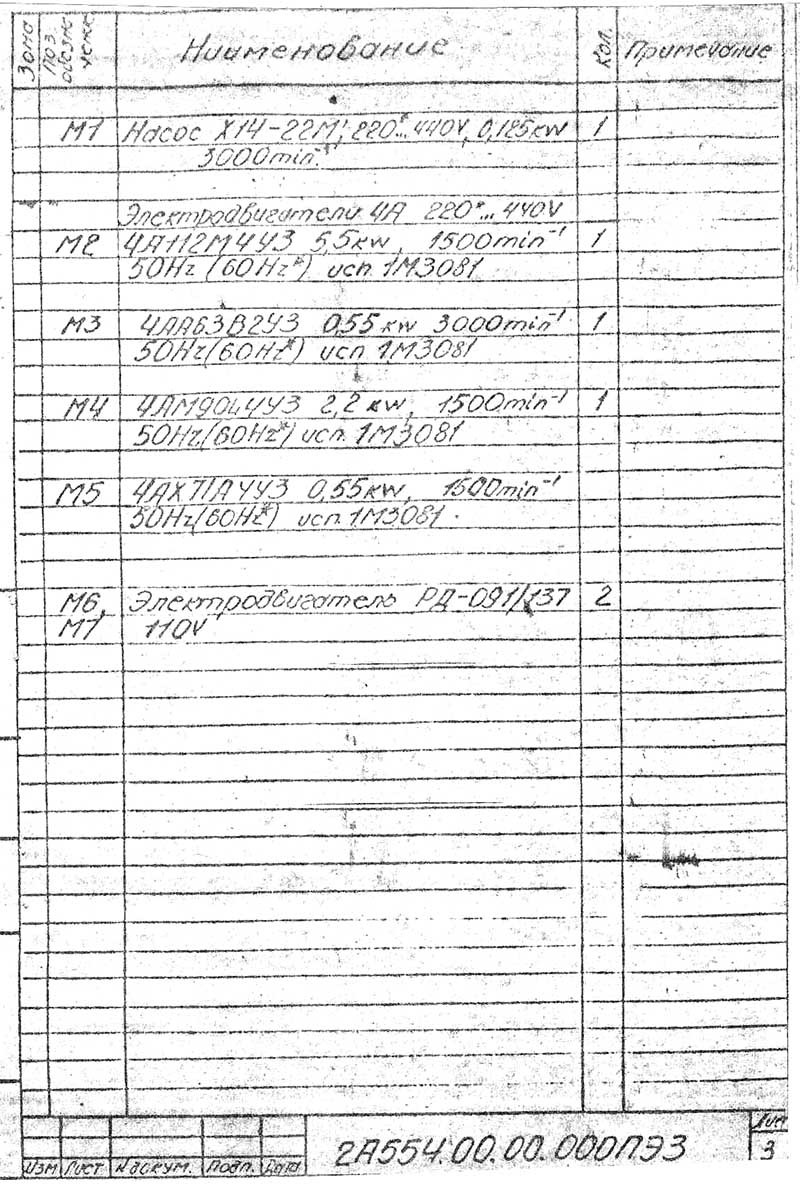 Зона
Поз. обозначение
Наименование
Кол.
Примечание
М1 Насос Х14-22М; 220*...440V, 0,125kw 1
3000min⁻¹
Электродвигатели 4А 220*...440V
М2 4А112М4У3 5,5kw, 1500min⁻¹ 1
50Hz (60Hz*) исп. 1М3081
М3 4АА63В2У3 0,55 kw 3000min⁻¹ 1
50Hz(60Hz*) исп 1М3081
М4 4АМ90L4У3 2,2 kw, 1500min⁻¹ 1
50Hz(60Hz*) исп. 1М3081
М5 4АХ71А4У3 0,55kw, 1500min⁻¹
50Hz(60Hz*) исп. 1М3081.
М6, Электродвигатель РД-091/137 2
М7 110V
Изм Лист № докум. Подп. Дата
2А554.00.00.000ПЭ3
Лист
3